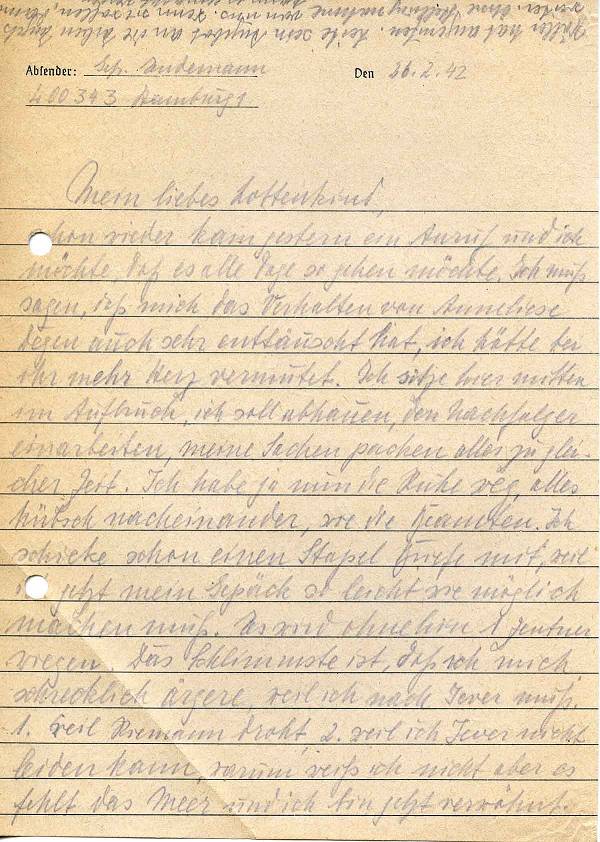 Müller hat angerufen. Leite sein Angebot an die alten
weiter ohne Stellungnahme von uns. Denn sie sollen
Absender: Gefr. Lindemann Den 26.2.42
L 00343 Hamburg 1
Mein liebes Lottenkind,
schon wieder kam gestern ein Anruf und ich
möchte, daß es alle Tage so gehen möchte. Ich muß
sagen, daß mich das Verhalten von Anneliese
Degen auch sehr enttäuscht hat, ich hätte bei
ihr mehr Herz vermutet. Ich sitze hier mitten
im Aufbruch, ich soll abhauen, den Nachfolger
einarbeiten, meine Sachen packen alles zu glei-
cher Zeit. Ich habe ja nun die Ruhe weg, alles
hübsch nacheinander, wie die Beamten. Ich
schicke schon einen Stapel Briefe mit, weil
ich jetzt mein Gepäck so leicht wie möglich
machen muß. Es wird ohnehin 1 Zentner
wiegen. Das Schlimmste ist, daß ich mich
schrecklich ärgere, weil ich nach Jever muß,
1. weil Niemann droht, 2. weil ich Jever nicht
leiden kann, warum weiß ich nicht aber es
fehlt das Meer und ich bin jetzt verwöhnt.